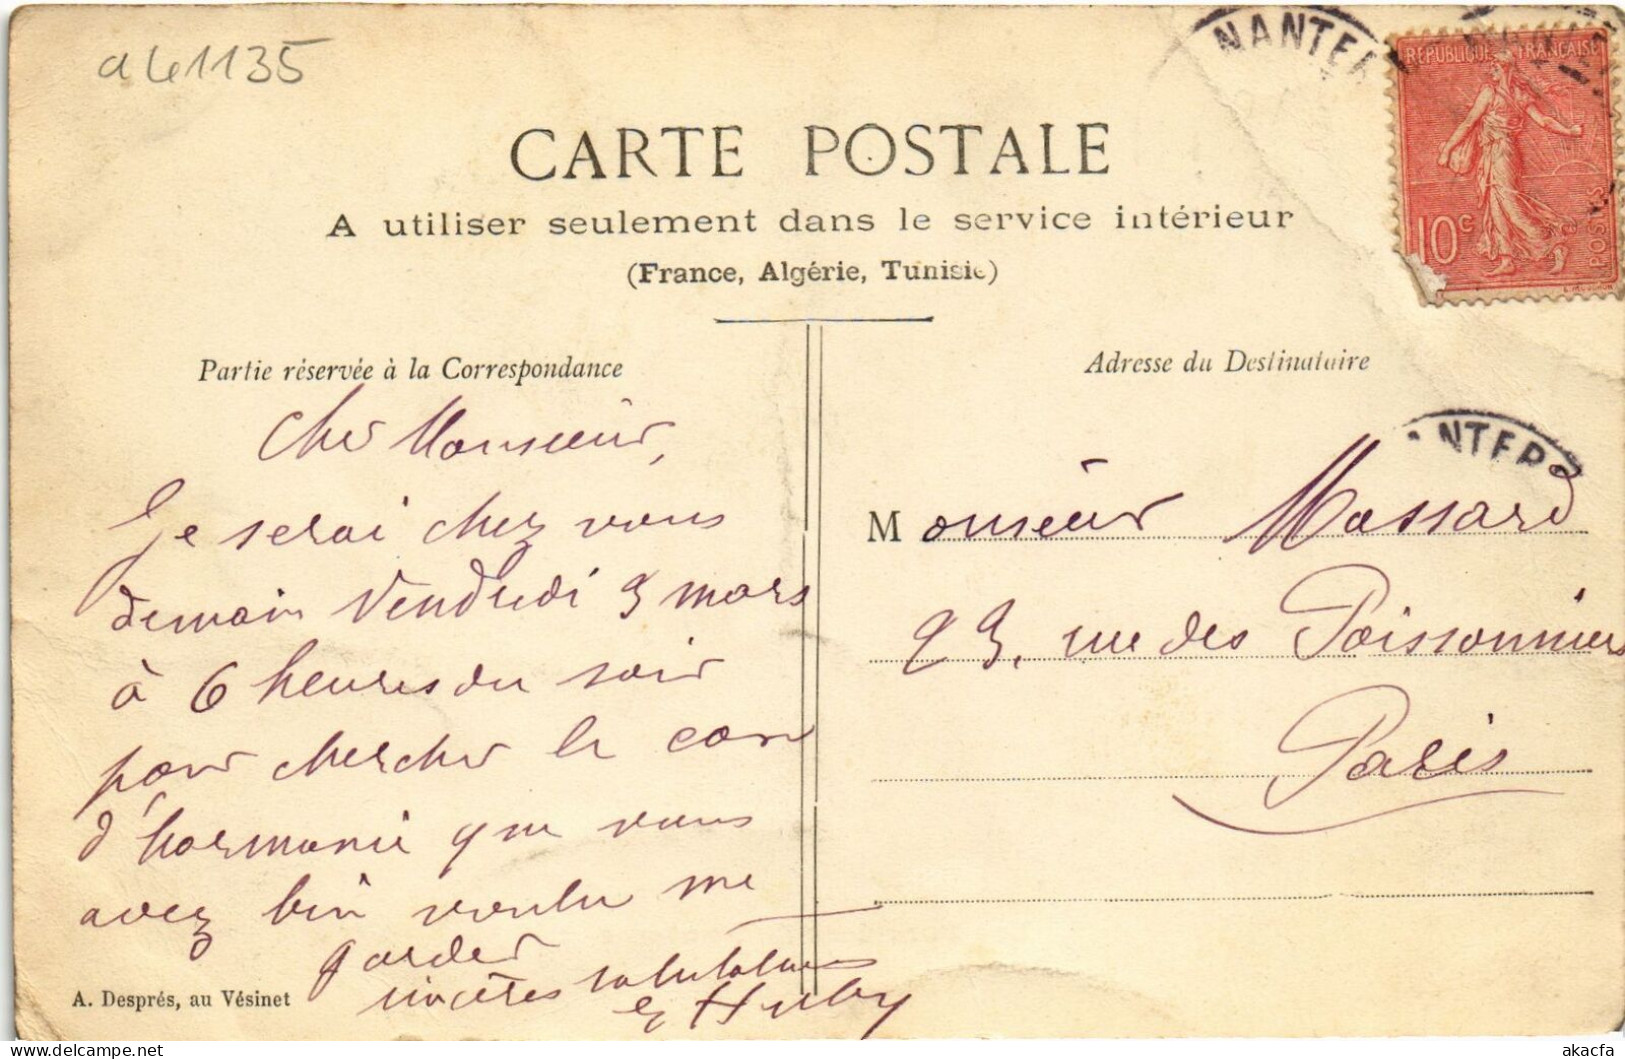 a41135
NANTER
REPUBLIQUE FRANÇAISE
10c
POSTES
CARTE POSTALE
A utiliser seulement dans le service intérieur
(France, Algérie, Tunisie)
Partie réservée à la Correspondance
Cher Monsieur,
Je serai chez vous
demain Vendredi 9 mars
à 6 heures du soir
pour chercher le cor
d'harmonie que vous
avez bien voulu me
garder
sincères salutations
Huby
A. Després, au Vésinet
Adresse du Destinataire
ANTER
Monsieur Massard
23, rue des Poissonniers
Paris
akacfa